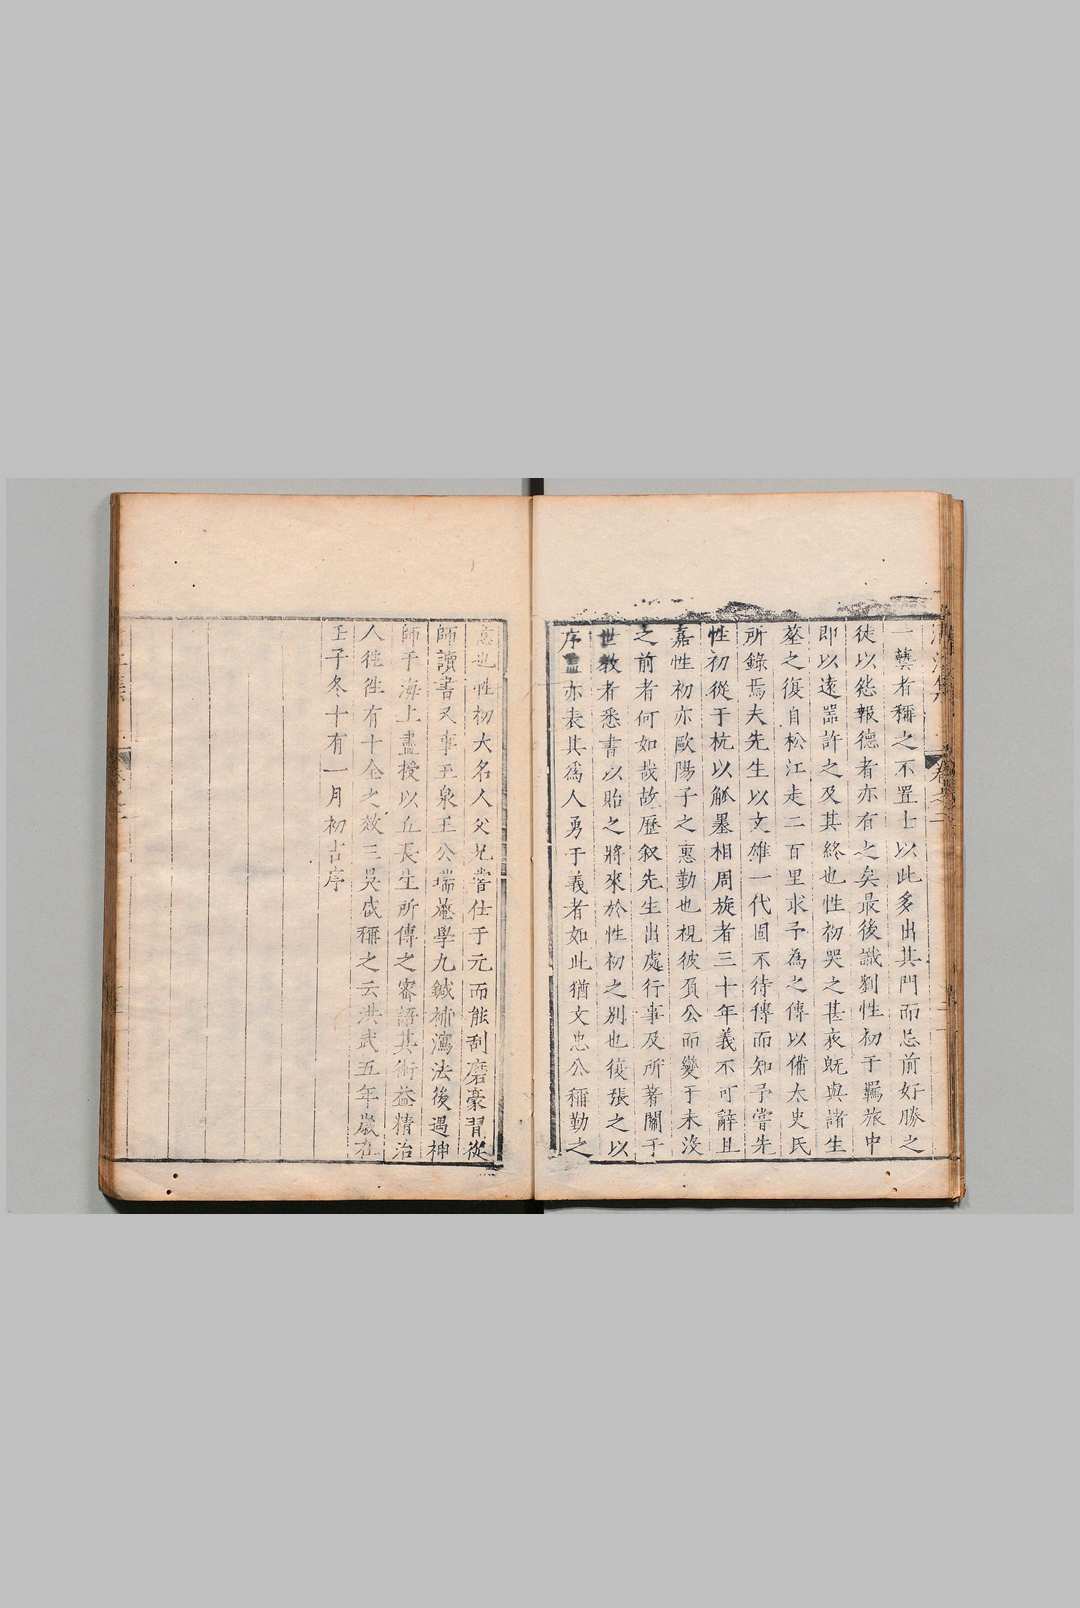 一藝者稱之不置士以此多出其門而忌前好勝之
徒以怨報德者亦有之矣最後識劉性初于羈旅中
即以遠噐許之及其終也性初哭之甚哀既與諸生
塟之復自松江走二百里求予為之傳以備太史氏
所錄焉夫先生以文雄一代固不待傳而知予嘗先
性初從于杭以觚墨相周旋者三十年義不可辭且
嘉性初亦歐陽子之惠勤也視彼負公而變于未沒
之前者何如哉故歷叙先生出處行事及所著關于
世教者悉書以貽之將來於性初之别也復張之以
序盖亦表其爲人勇于義者如此猶文忠公稱勤之
意也性初大名人父兄嘗仕于元而能刮磨豪習從
師讀書又事玉泉王公端菴學九鍼補瀉法後遇神
師于海上盡授以丘長生所傳之密語其術益精治
人徃徃有十全之效三吳咸稱之云洪武五年歲在
壬子冬十有一月初吉序
卷之二